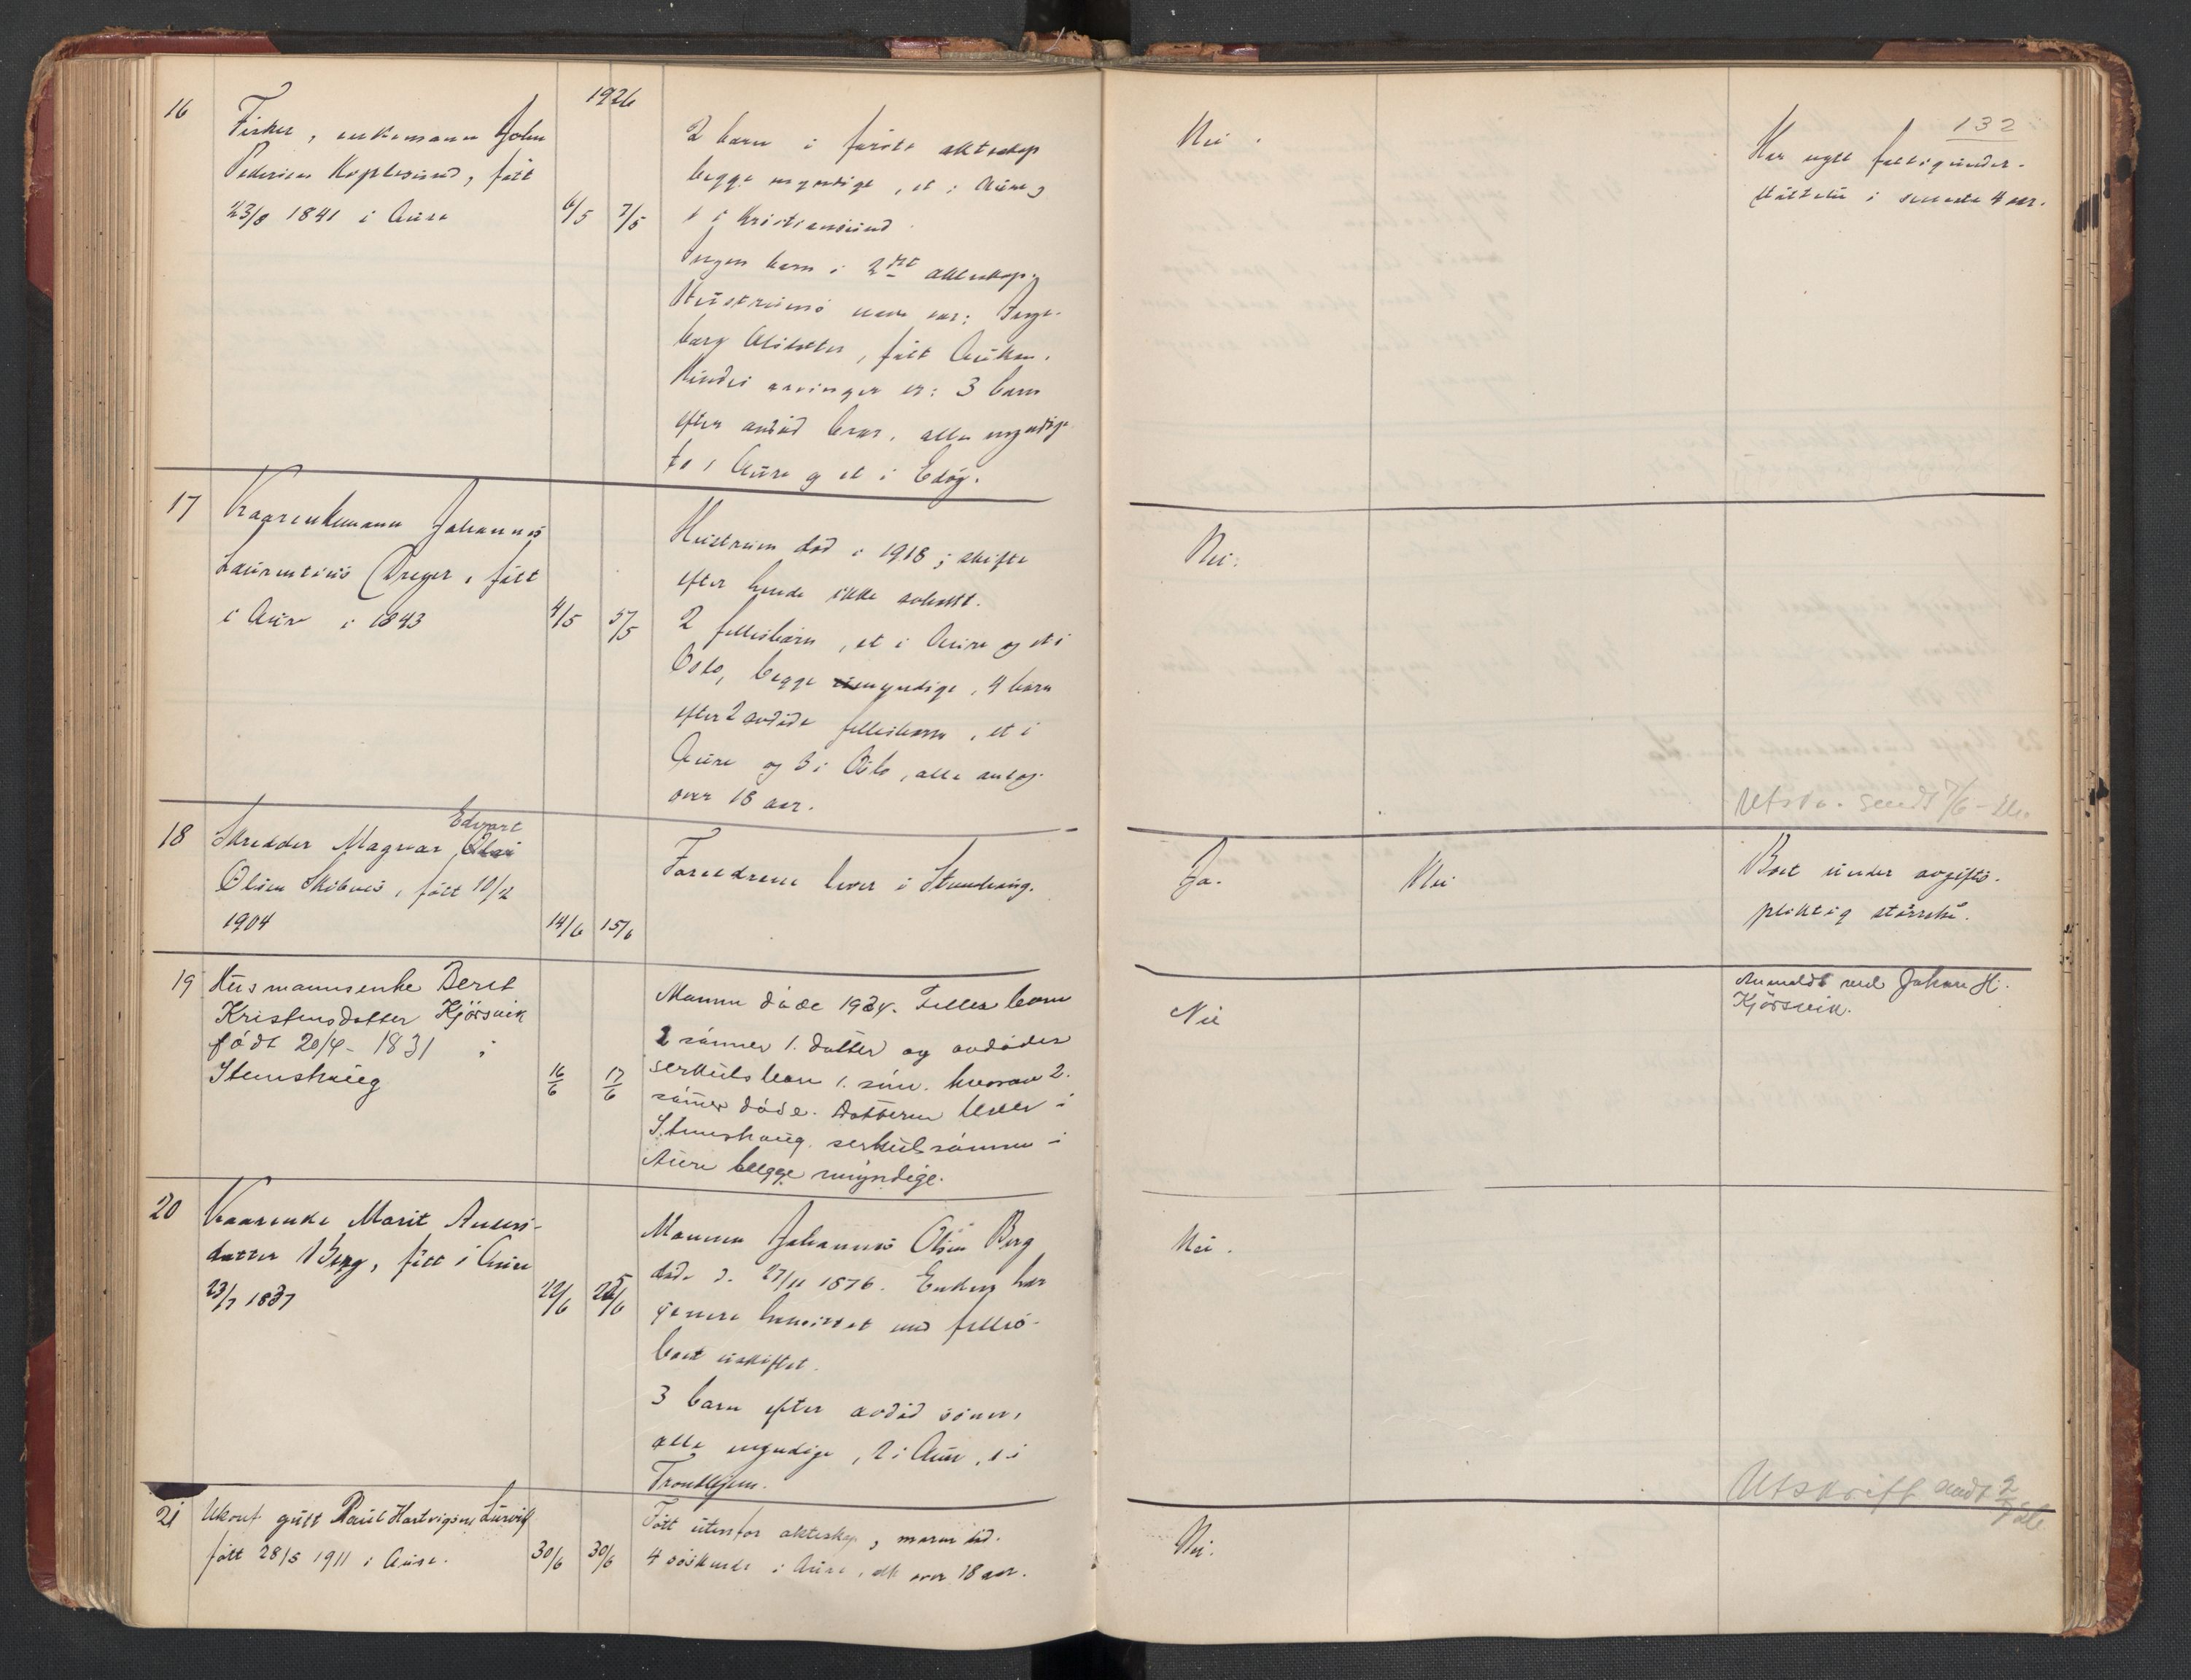 1926
132
16
Fisker, enkemann John
Pedersen Koplesund, født
23/8 1841 i Aure
6/5
7/5
2 barn i første ekteskap
begge myndige, et i Aure og
1 i Kristiansund.
Ingen barn i 2det ekteskap.
Hustruens navn var: Inge-
borg Olsdatter, født Auken.
Hendes arvinger er: 3 barn
efter avdød bror, alle myndige
to i Aure og et i Edøy.
Nei.
Har nydt fattigunder-
støttelse i seneste 4 aar.
17
Kaarenkemann Johannes
Laurentius Dreyer, født
i Aure i 1843
4/5
5/5
Hustruen død i 1918; skifte
efter hende ikke avholdt.
2 fellesbarn, et i Aure og et i
Oslo, begge myndige, 4 barn
efter 2 avdøde fellesbarn, et i
Aure og 3 i Oslo, alle antag.
over 18 aar.
Nei.
Utskr. sendt 7/6-26.
18
Skredder Magnar Edvart
Olsen Skibnes, født 10/2
1904
14/6
15/6
Foreldrene lever i Stemshaug.
Ja.
Nei
Boet under avgifts-
pliktig størrelse.
19
Husmannsenke Beret
Kristensdatter Kjörsvik
født 20/4-1831 i
Stemshaug
16/6
17/6
Mannen døde 1924. Felles barn
2 sønner 1. datter og avdødes
serkuls barn 1. søn. hvorav 2.
sønner døde. Datteren lever i
Stemshaug. serkulsønnen i
Aure begge myndige.
Nei
Anmeldt ved Johan H.
Kjörsvik.
20
Kaarenke Marit Anders-
datter Berg, født i Aure
23/7 1837
22/6
25/6
Mannen Johannes Olsen Berg
døde d. 27/11 1876. Enken har
senere hensittet med felles-
boet uskiftet.
3 barn efter avdød sønn,
alle myndige, 2 i Aure, 1 i
Trondhjem.
Nei.
Utskrift sendt 2/7 26
21
Ukonf. gutt Paul Hartvigsen Lurvik
født 28/5 1911 i Aure.
30/6
30/6
Født utenfor ekteskap, moren død.
4 søskende i Aure, alle over 18 aar.
Nei.